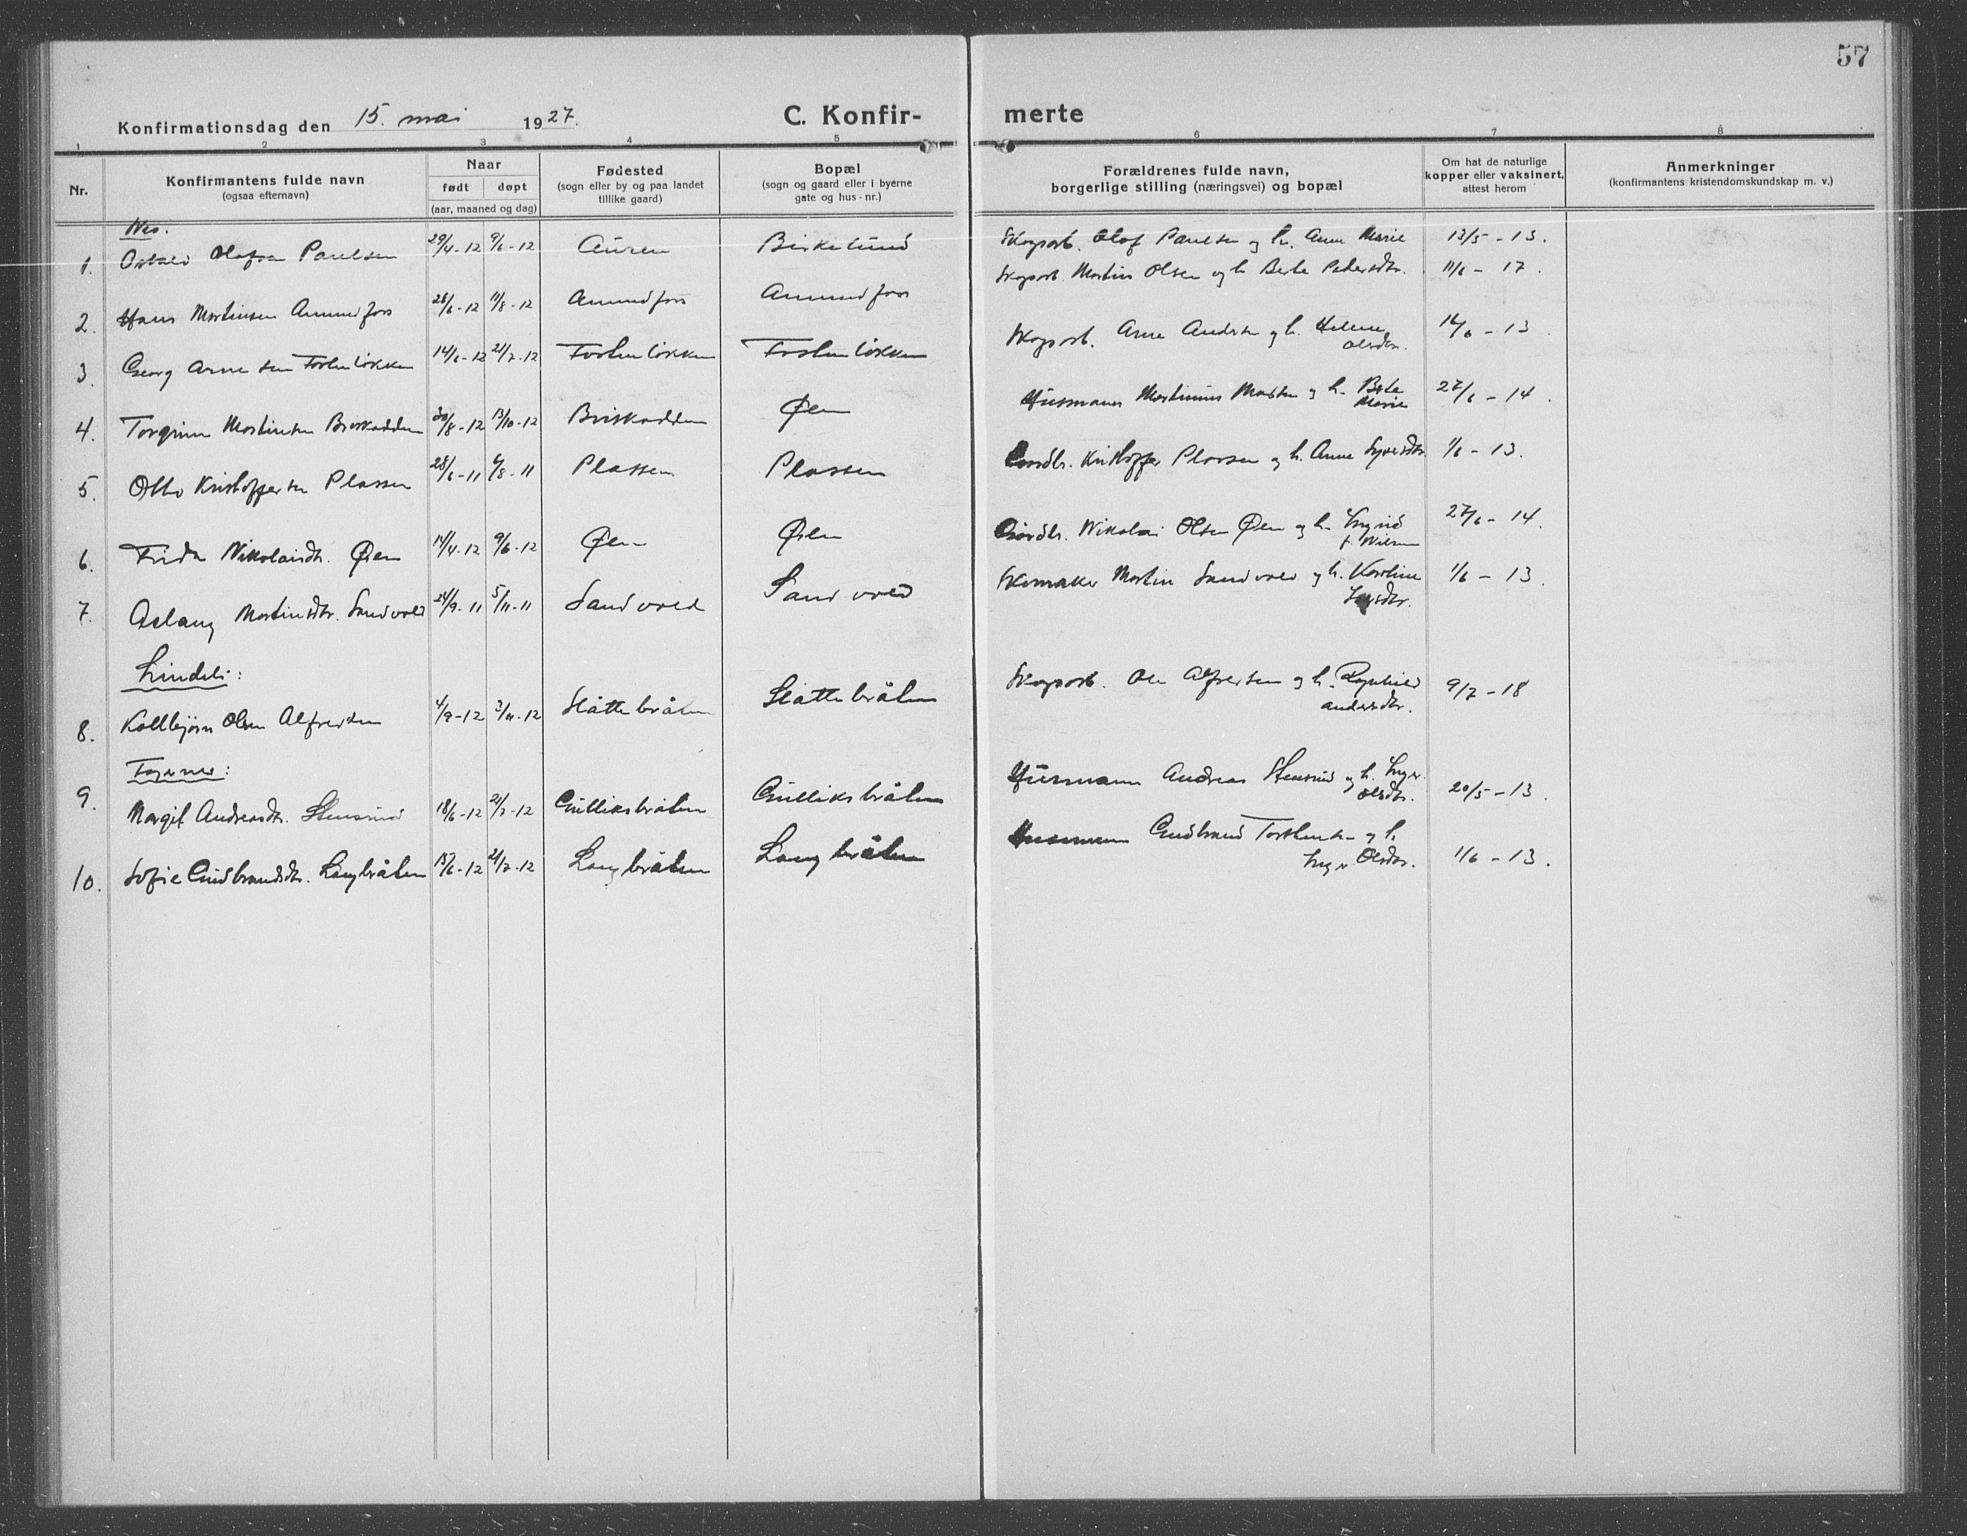 57
Konfirmationsdag den 15. mai 1927.
C. Konfir-
merte
1 2 3 4 5 6 7 8
Nr.
Konfirmantens fulde navn
(ogsaa efternavn)
Naar
født døpt
(aar, maaned og dag)
Fødested
(sogn eller by og paa landet
tillike gaard)
Bopæl
(sogn og gaard eller i byerne
gate og hus-nr.)
Forældrenes fulde navn,
borgerlige stilling (næringsvei) og bopæl
Om hat de naturlige
kopper eller vaksinert,
attest herom
Anmerkninger
(konfirmantens kristendomskundskap m. v.)
Nes.
1. Olafsen Paulsen 29/4-12 9/6-12 Auren Birkelund Skogsarb. Olof Paulsen og h. Anne Marie 13/5-13.
2. Hans Martinsen Amundfoss 28/6-12 11/8-12 Amundfoss Amundfoss Skogsarb. Martin Olsen og h. Berte Pedersdtr. 11/6-17.
3. Georg Arnesen Fosbenløkken 14/6-12 21/7-12 Skogsarb. Arne Andersen og h. Helene
Olsdtr. 16/6-13
4. Torgrim Martinsen 30/8-12 13/10-12 Øen Husmann Martinius og h. Berte
Marie 27/6-14.
5. Otto Kristoffersen Plassen 28/6-11 6/8-11 Plassen Plassen Gårdbr. Kristoffer Plassen og h. Anne Syversdtr. 1/6-13.
6. Frida Nikolaidtr. Øen 14/4-12 9/6-12 Øen Øien Gårdbr. Nikolai Olsen Øen og h. Ingrid
f. Nilsen 27/6-14.
7. Aslaug Martinsdtr. Sandvold 24/9-11 5/11-11 Sandvold Sandvold Skomaker Martin Sandvold og h. Karoline
1/6-13.
Lindeli:
8. Kollbjørn Olsen Alfredsen 4/9-12 3/11-12 Slåttebråten Slåttebråten Skogsarb. Ole Alfredsen og h. Ragnhild
Andersdtr. 9/7-18
9. Margit Andreasdtr. Stensrud 18/6-12 21/7-12 Gulliksbråten Gulliksbråten Husmann Andreas Stensrud og h. Inger
Olsdtr. 20/5-13.
10. Sofie Gudbrandsdtr. Langbråten 15/6-12 21/7-12 Langbråten Langbråten Husmann Gudbrand Torstensen og h.
Inger Olsdtr. 1/6-13.